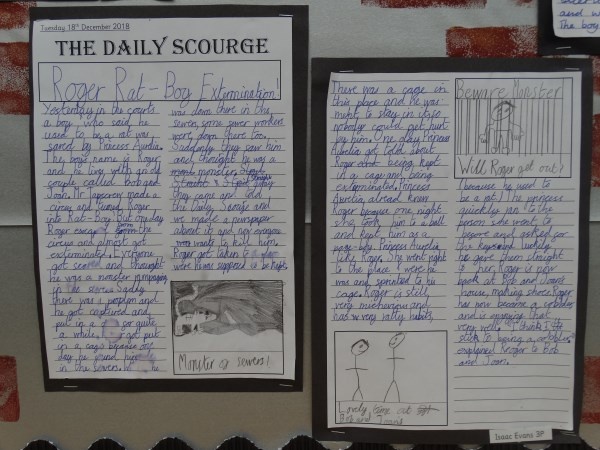 Tuesday 18th December 2018
THE DAILY SCOURGE
Roger Rat-Boy Extermination!
Yesterday in the courts
a boy who said he
used to be a rat was
saved by Princess Aurelia.
The boys name is Roger
and he lives with an old
couple called Bob and
Joan. Mr made a
circus and turned Roger
into Rat-Boy. But one day
Roger escaped from the
circus and almost got
exterminated. Everyone
got and thought
he was a monster rampaging
in the sewers. Sadly
there was a problem and
he got captured and
put in a for quite
a while. got put
in a cage because one
day he found
in the sewers. he
was down there in the
sewer some sewer workers
were down there too.
Suddenly they saw him
and thought he was a
monster. Straight
away
they came and told
the Daily and
we made a newspaper
about it and now everyone
wants to kill him.
Roger got taken to a place
were he was supposed to be kept.
Monster of sewers!
There was a cage in
this place and he was
ment to stay in it so
nobody could get hurt
by him. One day Princess
Aurelia got told about
Roger being kept
in a cage and being
exterminated. Princess
Aurelia already knew
Roger because one night
she took him to a ball
and kept him as a
page-boy. Princess Aurelia
like Roger. She went right
to the place were he
was and sprinted to his
cage. Roger is still
very mischievous and
has very ratty habits,
Lovely time at
Bob and Joan's
Beware Monster
Will Roger get out?
because he used to
be a rat! The princess
quickly ran to the
person she went to
before and asked for
the keys and luckily
he gave them straight
to her. Roger is now
back at Bob and Joan's
house, making shoes. Roger
has now became a cobbler
and is enjoying that
very well. "I think I'll
stick to being a cobbler"
explained Roger to Bob
and Joan.
Isaac Evans 3P
and w
The boy